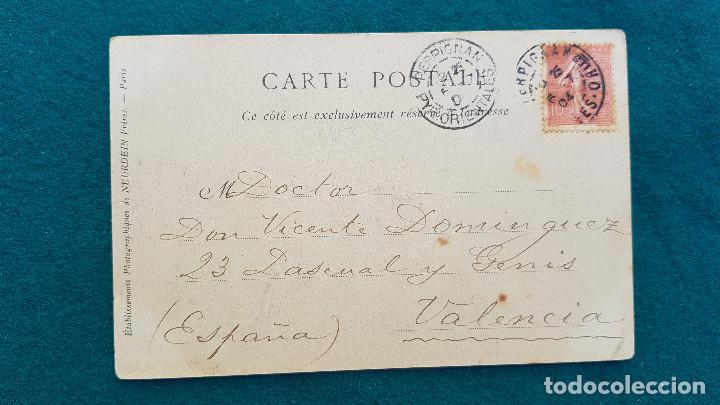 CARTE POSTALE
Ce côté est exclusivement réservé à l'adresse
PERPIGNAN
PYR. ORIENTALES
PERPIGNAN
04
M Doctor
Don Vicente Dominguez
23 Pascual y Genis
Valencia
(España)
Etablissements Photographiques de NEURDEIN Frères. — Paris
todocoleccion